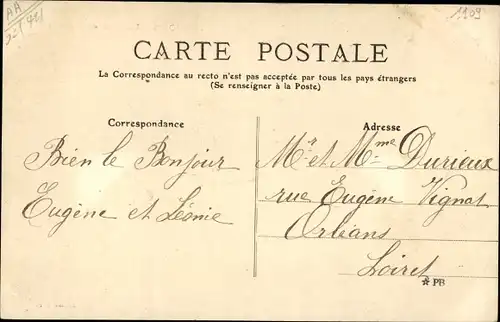 AA
1909
CARTE POSTALE
La Correspondance au recto n'est pas acceptée par tous les pays étrangers
(Se renseigner à la Poste)
Correspondance
Bien le Bonjour
Eugène et Léonie
Adresse
Mr et Mme Durieux
rue Eugène Vignat
Orléans
Loiret
PB